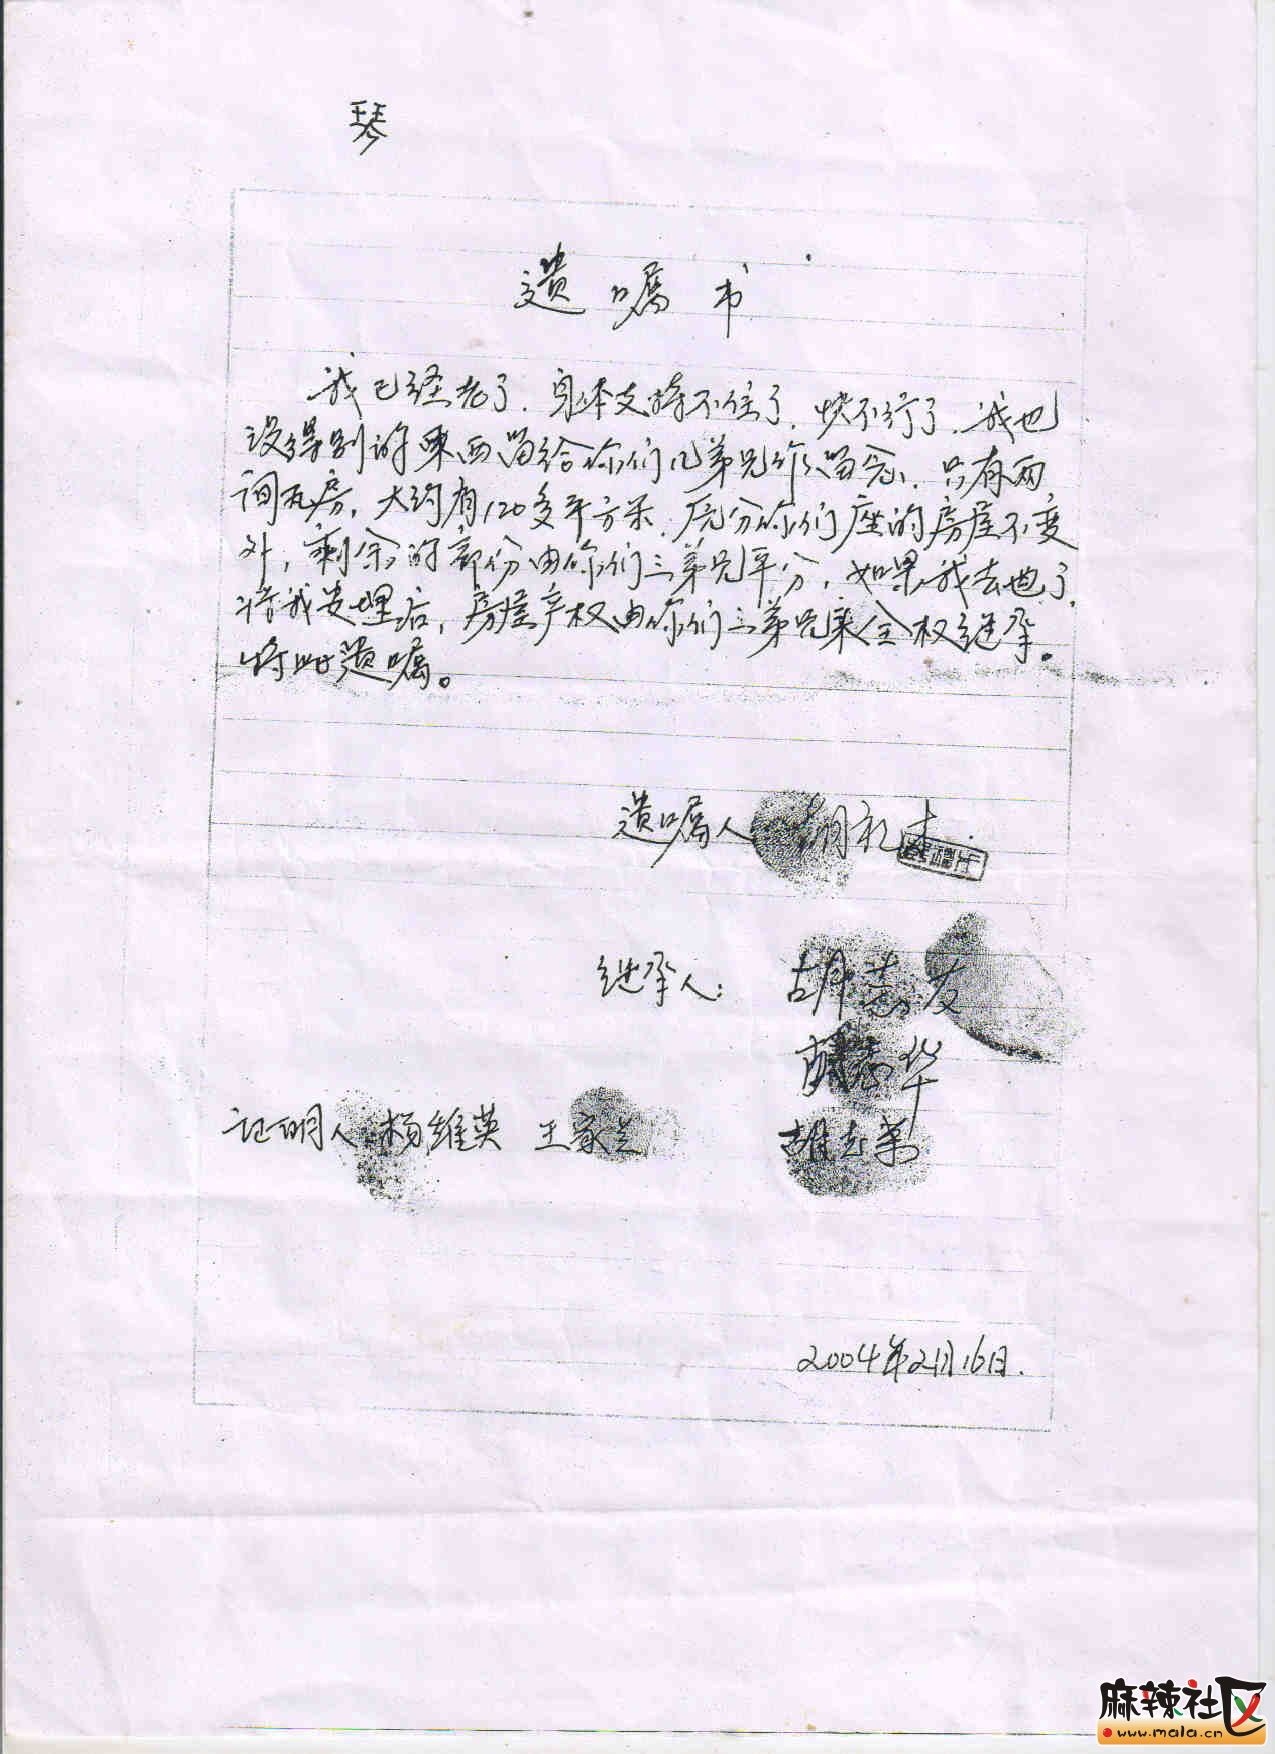 琴
遗嘱书
我已经老了，身体支持不住了，快不行了，我也
没得别的东西留给你们几弟兄作留念，只有两
间瓦房，大约有120多平方米，原分你们座的房屋不变
外，剩余的部份由你们三弟兄平分，如果我去世了，
将我安埋后，房屋产权由你们三弟兄来全权继承。
特此遗嘱。
遗嘱人 胡礼才
继承人：胡志友
胡志华
胡志荣
证明人：杨维英 王家兰
2004年2月16日.
麻辣社区
www.mala.cn